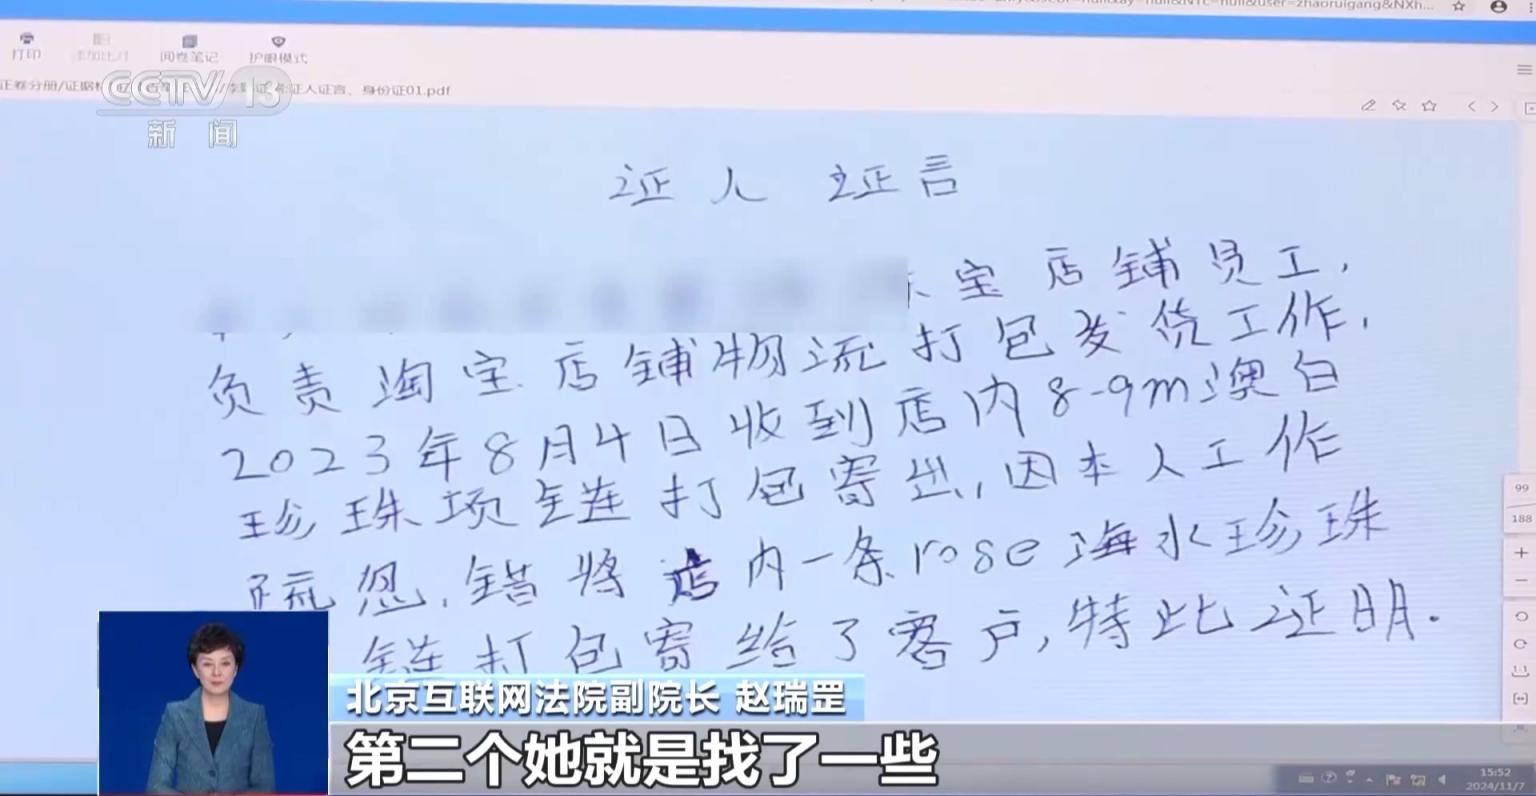 user=zhaoruigang&NXh...
打印 添加比对 阅卷笔记 护眼模式
正卷分册/证据 证人证言、身份证01.pdf
CCTV 13
新闻
证人证言
宝店铺员工,
负责淘宝店铺物流打包发货工作,
2023年8月4日收到店内8-9m澳白
珍珠项链打包寄出,因本人工作
疏忽,错将店内一条rose海水珍珠
链打包寄给了客户,特此证明.
99
188
北京互联网法院副院长 赵瑞罡
第二个她就是找了一些
15:52
2024/11/7